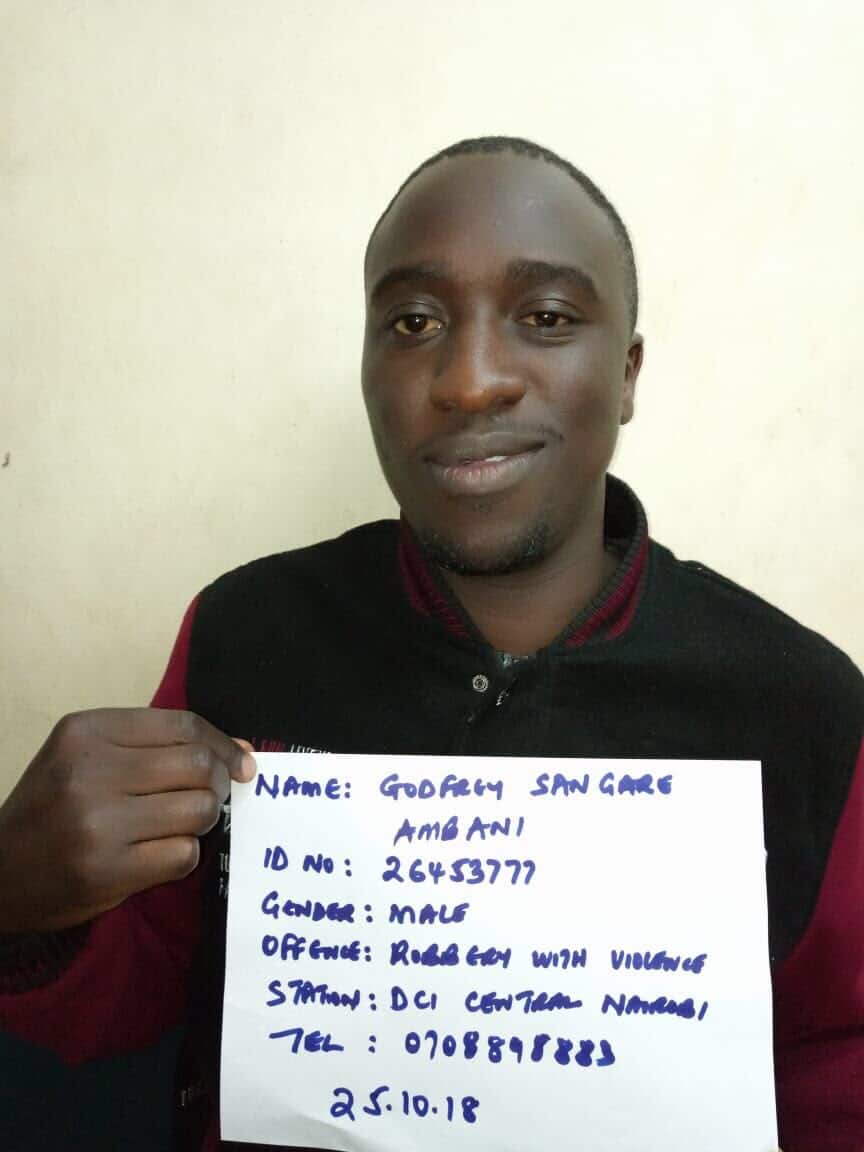 NAME: GODFREY SANGARE
AMBANI
ID NO: 26453777
GENDER: MALE
OFFENCE: ROBBERY WITH VIOLENCE
STATION: DCI CENTRAL NAIROBI
TEL : 0708898883
25.10.18